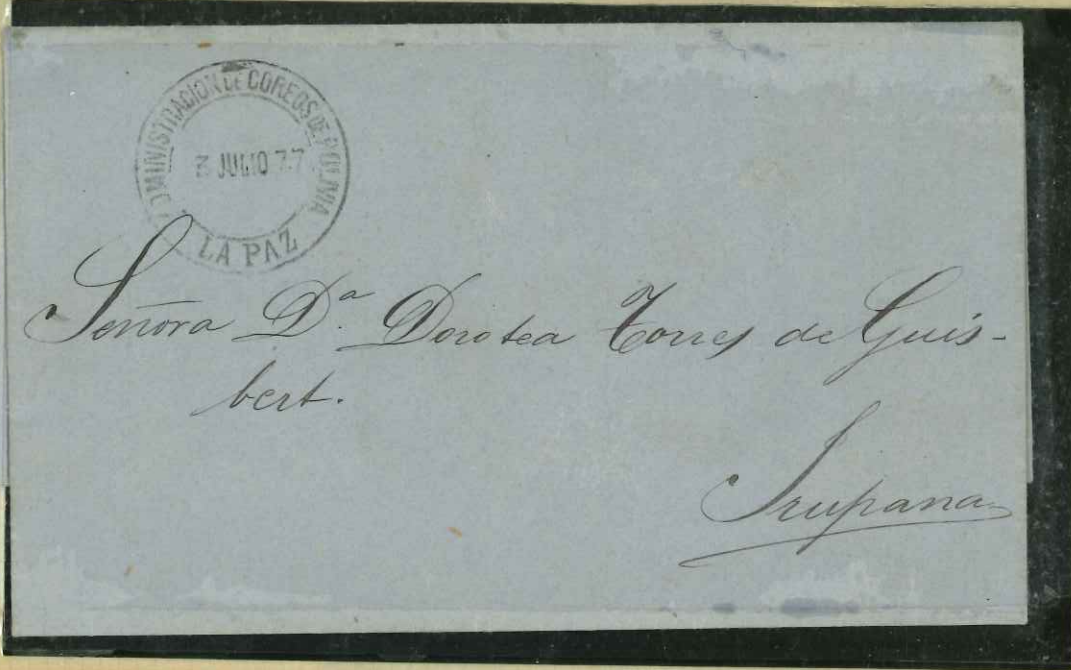 ADMINISTRACION DE CORREOS DE BOLIVIA
3 JULIO 77
LA PAZ
Señora Dª. Dorotea Torres de Guis-
bert.
Irupana